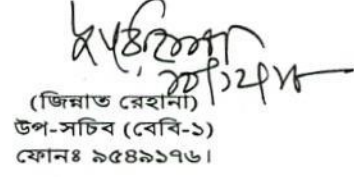 (জিন্নাত রেহানা)
উপ-সচিব (বেবি-১)
ফোনঃ ৯৫৪৯১৭৬।